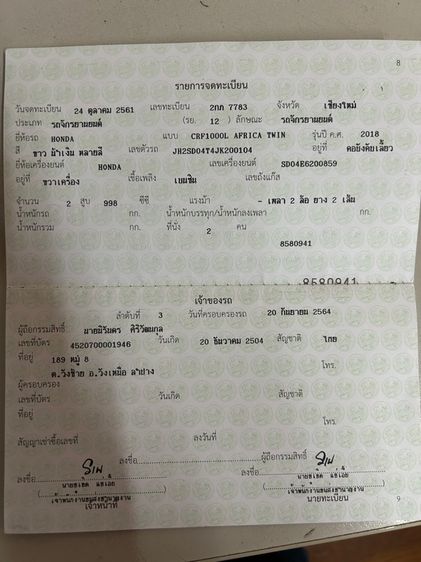 8
รายการจดทะเบียน
วันจดทะเบียน 24 ตุลาคม 2561 เลขทะเบียน 2กภ 7783 จังหวัด เชียงใหม่
ประเภท รถจักรยานยนต์ (รย. 12 ) ลักษณะ รถจักรยานยนต์
ยี่ห้อรถ HONDA แบบ CRF1000L AFRICA TWIN รุ่นปี ค.ศ. 2018
สี ขาว น้ำเงิน หลายสี เลขตัวรถ JH2SD04T4JK200104 อยู่ที่ คอยึดคันเลี้ยว
ยี่ห้อเครื่องยนต์ HONDA เลขเครื่องยนต์ SD04E6200859
อยู่ที่ ขวาเครื่อง เชื้อเพลิง เบนซิน เลขถังแก๊ส
จำนวน 2 สูบ 998 ซีซี แรงม้า - เพลา 2 ล้อ ยาง 2 เส้น
น้ำหนักรถ กก. น้ำหนักบรรทุก/น้ำหนักลงเพลา กก.
น้ำหนักรวม กก. ที่นั่ง 2 คน
8580941
8580941
เจ้าของรถ
ลำดับที่ 3 วันที่ครอบครองรถ 20 กันยายน 2564
ผู้ถือกรรมสิทธิ์ นาย ศิริวัฒนกุล
เลขที่บัตร 4520700001946 วันเกิด 20 ธันวาคม 2504 สัญชาติ ไทย
ที่อยู่ 189 หมู่ 8 โทร.
ต.วังซ้าย อ.วังเหนือ ลำปาง
ผู้ครอบครอง
เลขที่บัตร วันเกิด สัญชาติ
ที่อยู่
โทร.
สัญญาเช่าซื้อเลขที่ ลงวันที่
ลงชื่อ ผู้ถือกรรมสิทธิ์
ลงชื่อ ลงชื่อ
เจ้าพนักงานขนส่งชำนาญงาน เจ้าพนักงานขนส่งชำนาญงาน
เจ้าหน้าที่ นายทะเบียน
9